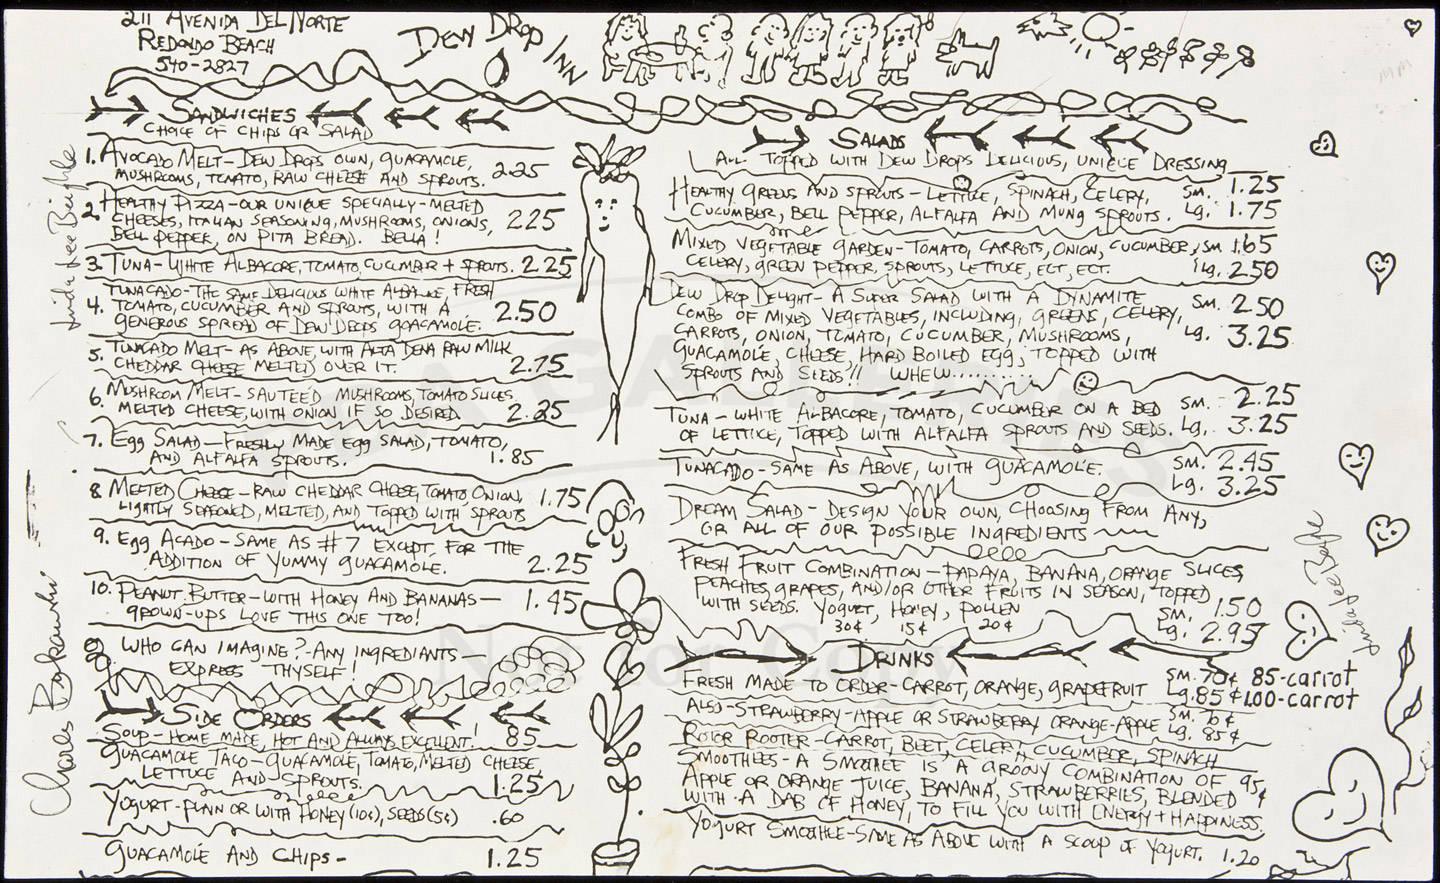 211 AVENIDA DEL NORTE
REDONDO BEACH
540-2827
DEW DROP INN
SANDWICHES
CHOICE OF CHIPS OR SALAD
1. AVOCADO MELT - DEW DROPS OWN, GUACAMOLE,
MUSHROOMS, TOMATO, RAW CHEESE AND SPROUTS. 2.25
2. HEALTHY PIZZA - OUR UNIQUE SPECIALLY - MELTED
CHEESES, ITALIAN SEASONING, MUSHROOMS, ONIONS,
BELL PEPPER, ON PITA BREAD. BELLA! 225
3. TUNA - WHITE ALBACORE, TOMATO, CUCUMBER + SPROUTS. 2.25
4. TUNACADO - THE SAME DELICIOUS WHITE ALBACORE, FRESH
TOMATO, CUCUMBER AND SPROUTS, WITH A
GENEROUS SPREAD OF DEW DROPS GUACAMOLE. 2.50
5. TUNACADO MELT - AS ABOVE, WITH ALTA DENA RAW MILK
CHEDDAR CHEESE MELTED OVER IT. 2.75
6. MUSHROOM MELT - SAUTEÉD MUSHROOMS, TOMATO SLICES,
MELTED CHEESE, WITH ONION IF SO DESIRED 2.25
7. EGG SALAD - FRESHLY MADE EGG SALAD, TOMATO,
AND ALFALFA SPROUTS. 1.85
8. MELTED CHEESE - RAW CHEDDAR CHEESE, TOMATO, ONION,
LIGHTLY SEASONED, MELTED, AND TOPPED WITH SPROUTS 1.75
9. EGG ACADO - SAME AS #7 EXCEPT, FOR THE
ADDITION OF YUMMY GUACAMOLE. 2.25
10. PEANUT BUTTER - WITH HONEY AND BANANAS -
GROWN-UPS LOVE THIS ONE TOO! 1.45
WHO CAN IMAGINE? - ANY INGREDIANTS
EXPRESS THYSELF!
SIDE ORDERS
SOUP - HOME MADE, HOT AND ALWAYS EXCELLENT! 85
GUACAMOLE TACO - GUACAMOLE, TOMATO, MELTED CHEESE
LETTUCE AND SPROUTS. 1.25
YOGURT - PLAIN OR WITH HONEY (10¢), SEEDS (5¢) .60
GUACAMOLÉ AND CHIPS - 1.25
SALADS
ALL TOPPED WITH DEW DROPS DELICIOUS, UNIQUE DRESSING
HEALTHY GREENS AND SPROUTS - LETTUCE, SPINACH, CELERY, SM. 1.25
CUCUMBER, BELL PEPPER, ALFALFA AND MUNG SPROUTS. Lg. 1.75
MIXED VEGETABLE GARDEN - TOMATO, CARROTS, ONION, CUCUMBER, SM 1.65
CELERY, GREEN PEPPER, SPROUTS, LETTUCE, ECT, ECT. Lg. 2.50
DEW DROP DELIGHT - A SUPER SALAD WITH A DYNAMITE SM. 2.50
COMBO OF MIXED VEGETABLES, INCLUDING, GREENS, CELERY,
CARROTS, ONION, TOMATO, CUCUMBER, MUSHROOMS, Lg. 3.25
GUACAMOLE, CHEESE, HARD BOILED EGG, TOPPED WITH
SPROUTS AND SEEDS!! WHEW..........
TUNA - WHITE ALBACORE, TOMATO, CUCUMBER ON A BED SM. 2.25
OF LETTICE, TOPPED WITH ALFALFA SPROUTS AND SEEDS. Lg. 3.25
TUNACADO - SAME AS ABOVE, WITH GUACAMOLE. SM. 2.45
Lg. 3.25
DREAM SALAD - DESIGN YOUR OWN, CHOOSING FROM ANY,
OR ALL OF OUR POSSIBLE INGREDIENTS
FRESH FRUIT COMBINATION - PAPAYA, BANANA, ORANGE SLICES,
PEACHES, GRAPES, AND/OR OTHER FRUITS IN SEASON, TOPPED
WITH SEEDS. YOGURT, HONEY, POLLEN SM. 1.50
30¢ 15¢ 20¢ Lg. 2.95
DRINKS
FRESH MADE TO ORDER - CARROT, ORANGE, GRAPEFRUIT SM. 70¢ 85-carrot
Lg. 85¢ 1.00-carrot
ALSO - STRAWBERRY - APPLE OR STRAWBERRY ORANGE - APPLE SM. 76¢
Lg. 85¢
ROTOR ROOTER - CARROT, BEET, CELERY, CUCUMBER, SPINACH
SMOOTHEES - A SMOOTHEE IS A GROOVY COMBINATION OF 95¢
APPLE OR ORANGE JUICE, BANANA, STRAWBERRIES, BLENDED
WITH A DAB OF HONEY, TO FILL YOU WITH ENERGY + HAPPINESS.
YOGURT SMOOTHEE - SAME AS ABOVE WITH A SCOOP OF YOGURT. 1.20
Charles Bukowski
Linda Lee Beighle
Linda Lee Beighle
MM
GALLERIES
Not for Copy